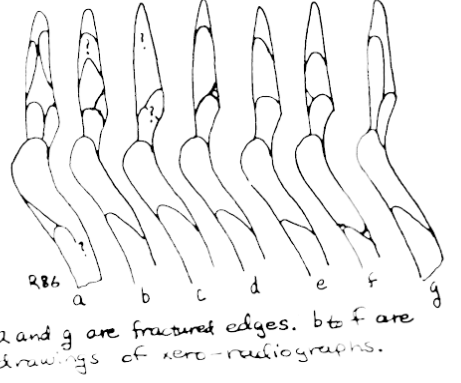 ?
?
?
?
R86
a b c d e f g
a and g are fractured edges. b to f are
drawings of xero-radiographs.